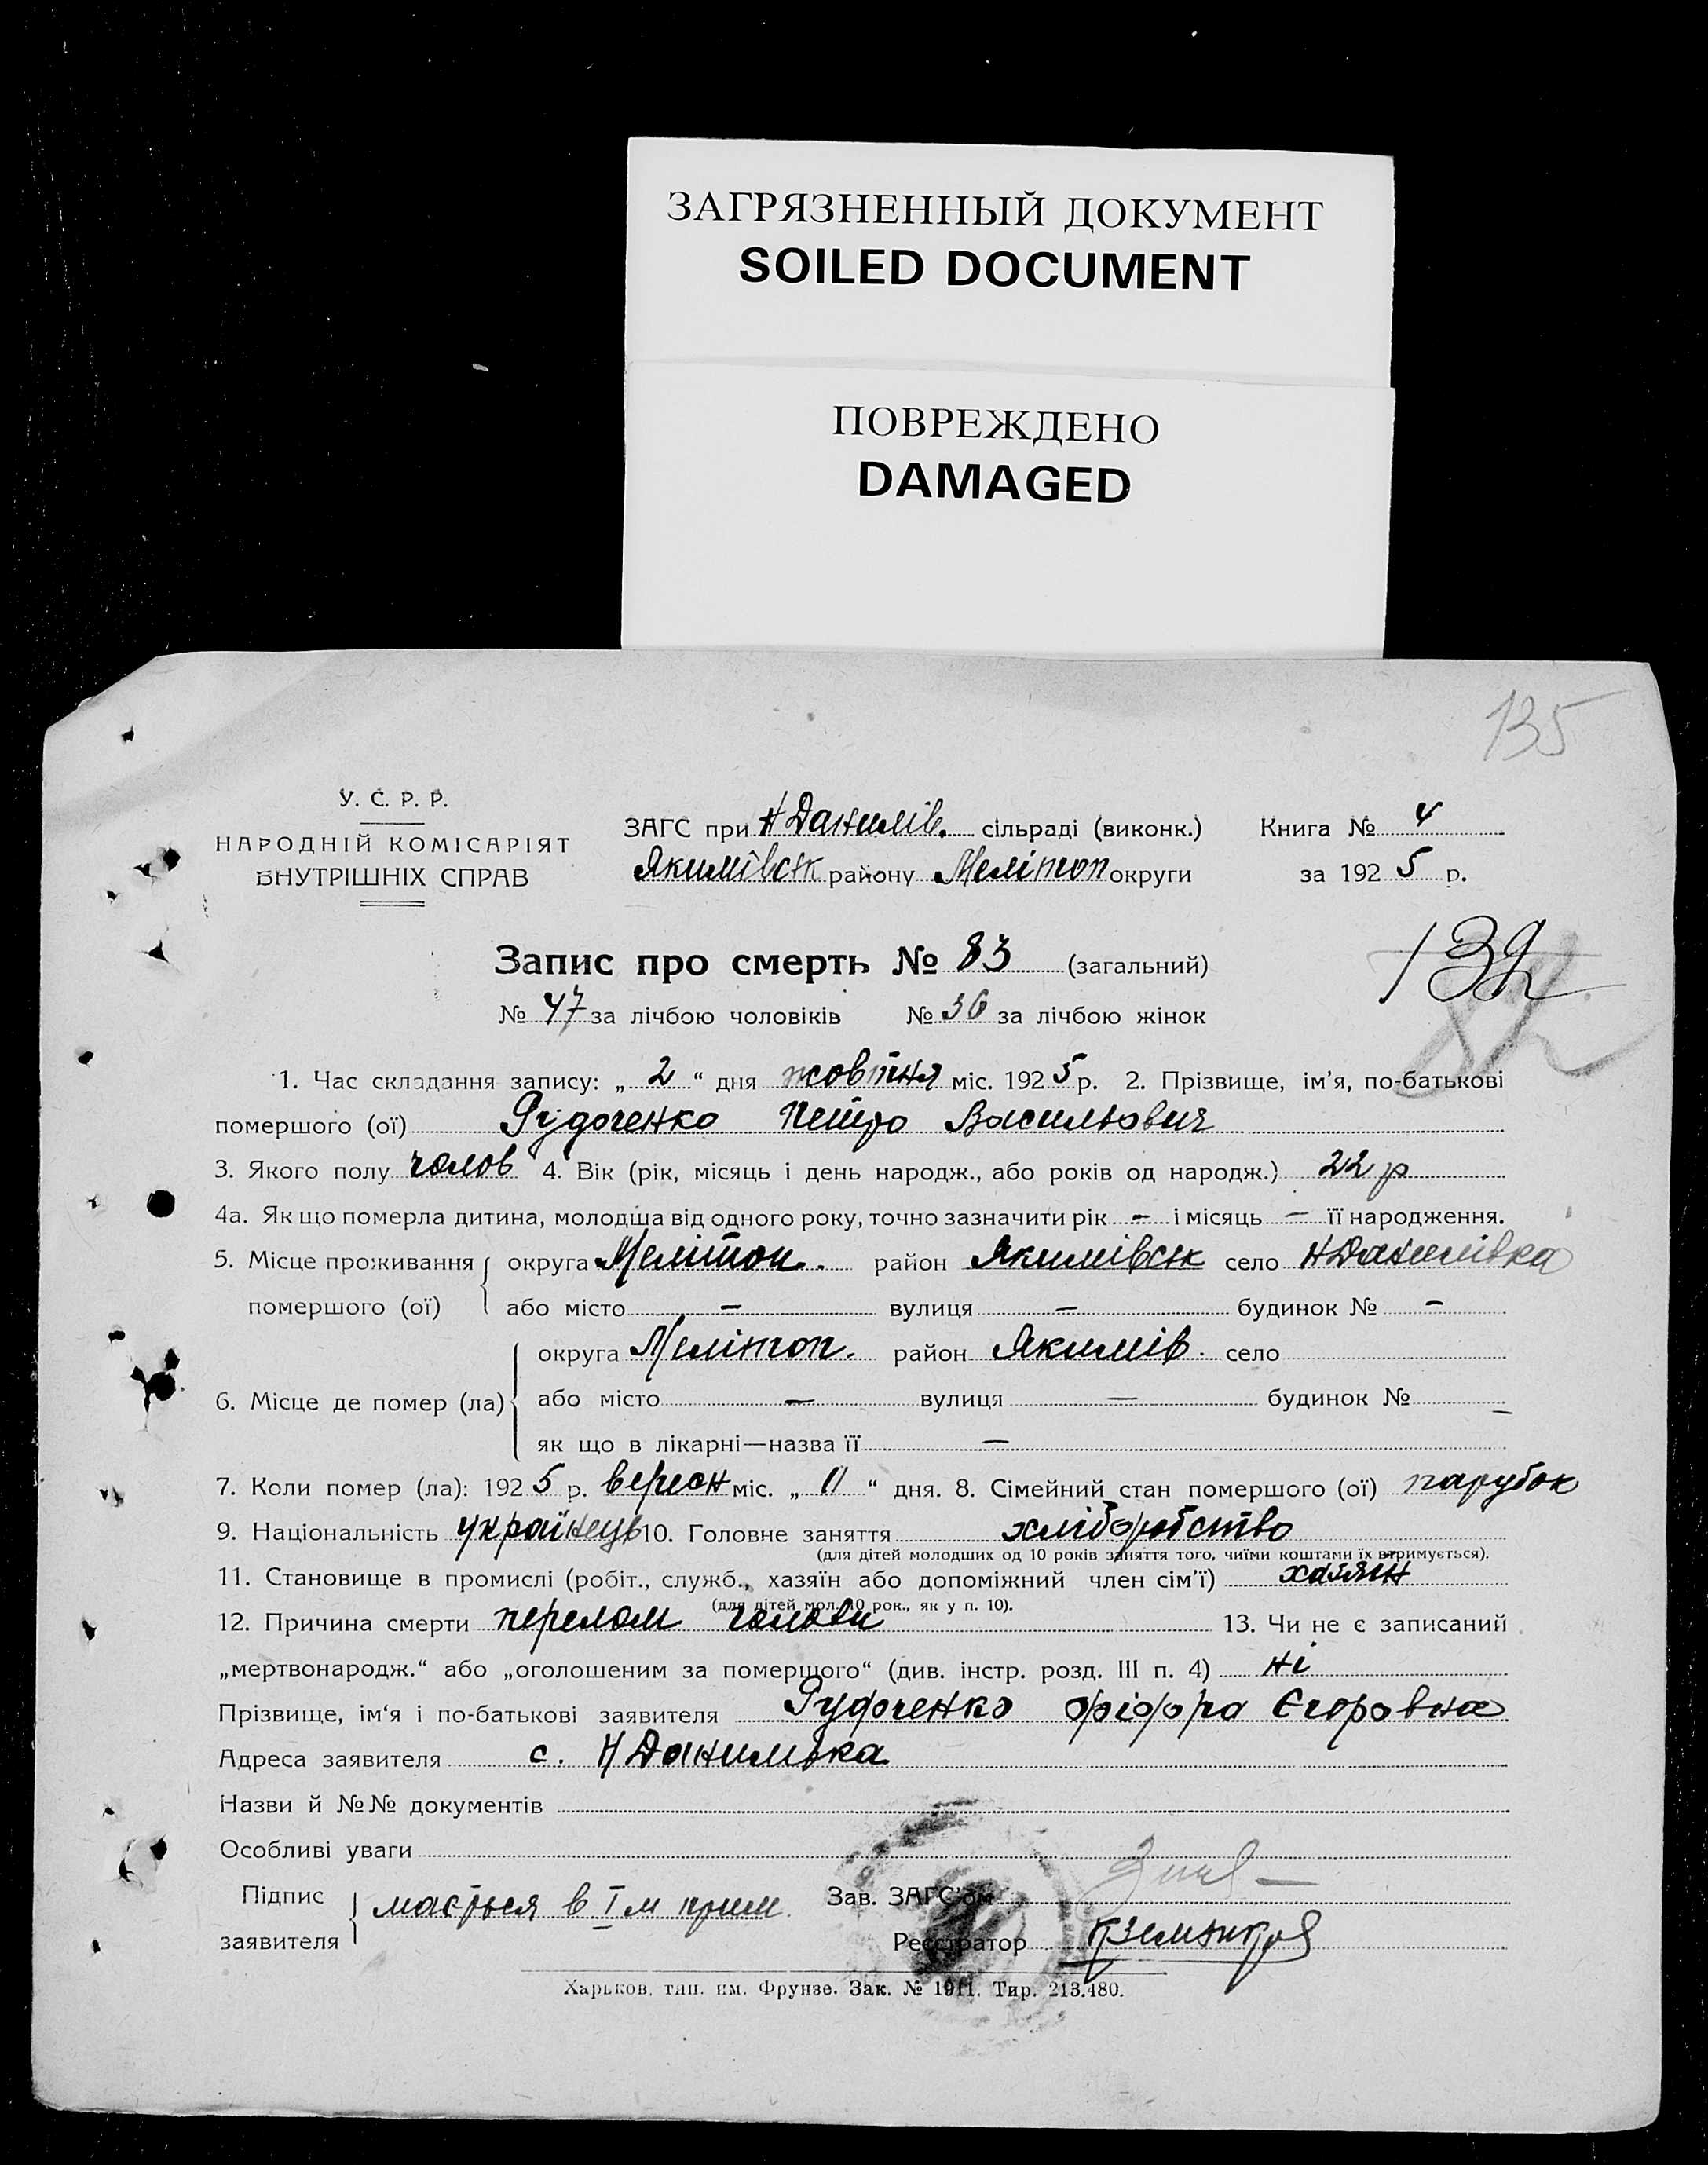 ЗАГРЯЗНЕННЫЙ ДОКУМЕНТ
SOILED DOCUMENT
ПОВРЕЖДЕНО
DAMAGED
135
У. С. Р. Р.
НАРОДНІЙ КОМІСАРІЯТ
ВНУТРІШНІХ СПРАВ
ЗАГС при Н Данилів. сільраді (виконк.) Книга № 4
Якимівськ району Мелітоп округи за 1925 р.
Запис про смерть № 83 (загальний)
132
№ 47 за лічбою чоловіків № 36 за лічбою жінок
1. Час складання запису: „ 2 “ дня жовтня міс. 1925 р. 2. Прізвище, ім'я, по-батькові
помершого (ої) Рудоченко Петро Васильович
3. Якого полу чолов 4. Вік (рік, місяць і день народж., або років од народж.) 22 р
4а. Як що померла дитина, молодша від одного року, точно зазначити рік – і місяць – її народження.
5. Місце проживання округа Мелітоп. район Якимівськ село Н Данилівка
помершого (ої) або місто – вулиця – будинок № –
округа Мелітоп. район Якимів. село
6. Місце де помер (ла) або місто – вулиця – будинок № –
як що в лікарні—назва її –
7. Коли помер (ла): 1925 р. вересн міс. „ 11 “ дня. 8. Сімейний стан помершого (ої) парубок
9. Національність українець 10. Головне заняття хліборобство
(для дітей молодших од 10 років заняття того, чиїми коштами їх втримується).
11. Становище в промислі (робіт., служб., хазяїн або допоміжний член сім'ї) хазяїн
(для дітей мол. 10 рок., як у п. 10).
12. Причина смерти перелом голови 13. Чи не є записаний
„мертвонародж.“ або „оголошеним за померщого“ (див. інстр. розд. III п. 4) ні
Прізвище, ім‘я і по-батькові заявителя Рудоченко Єгоровна
Адреса заявителя с. Н Данилівка
Назви й №№ документів
Особливі уваги
Підпис заявителя мається в I м прим. Зав. ЗАГС'ом
Реєстратор
Харьков, тип. им. Фрунзе. Зак. № 1911. Тир. 213.480.